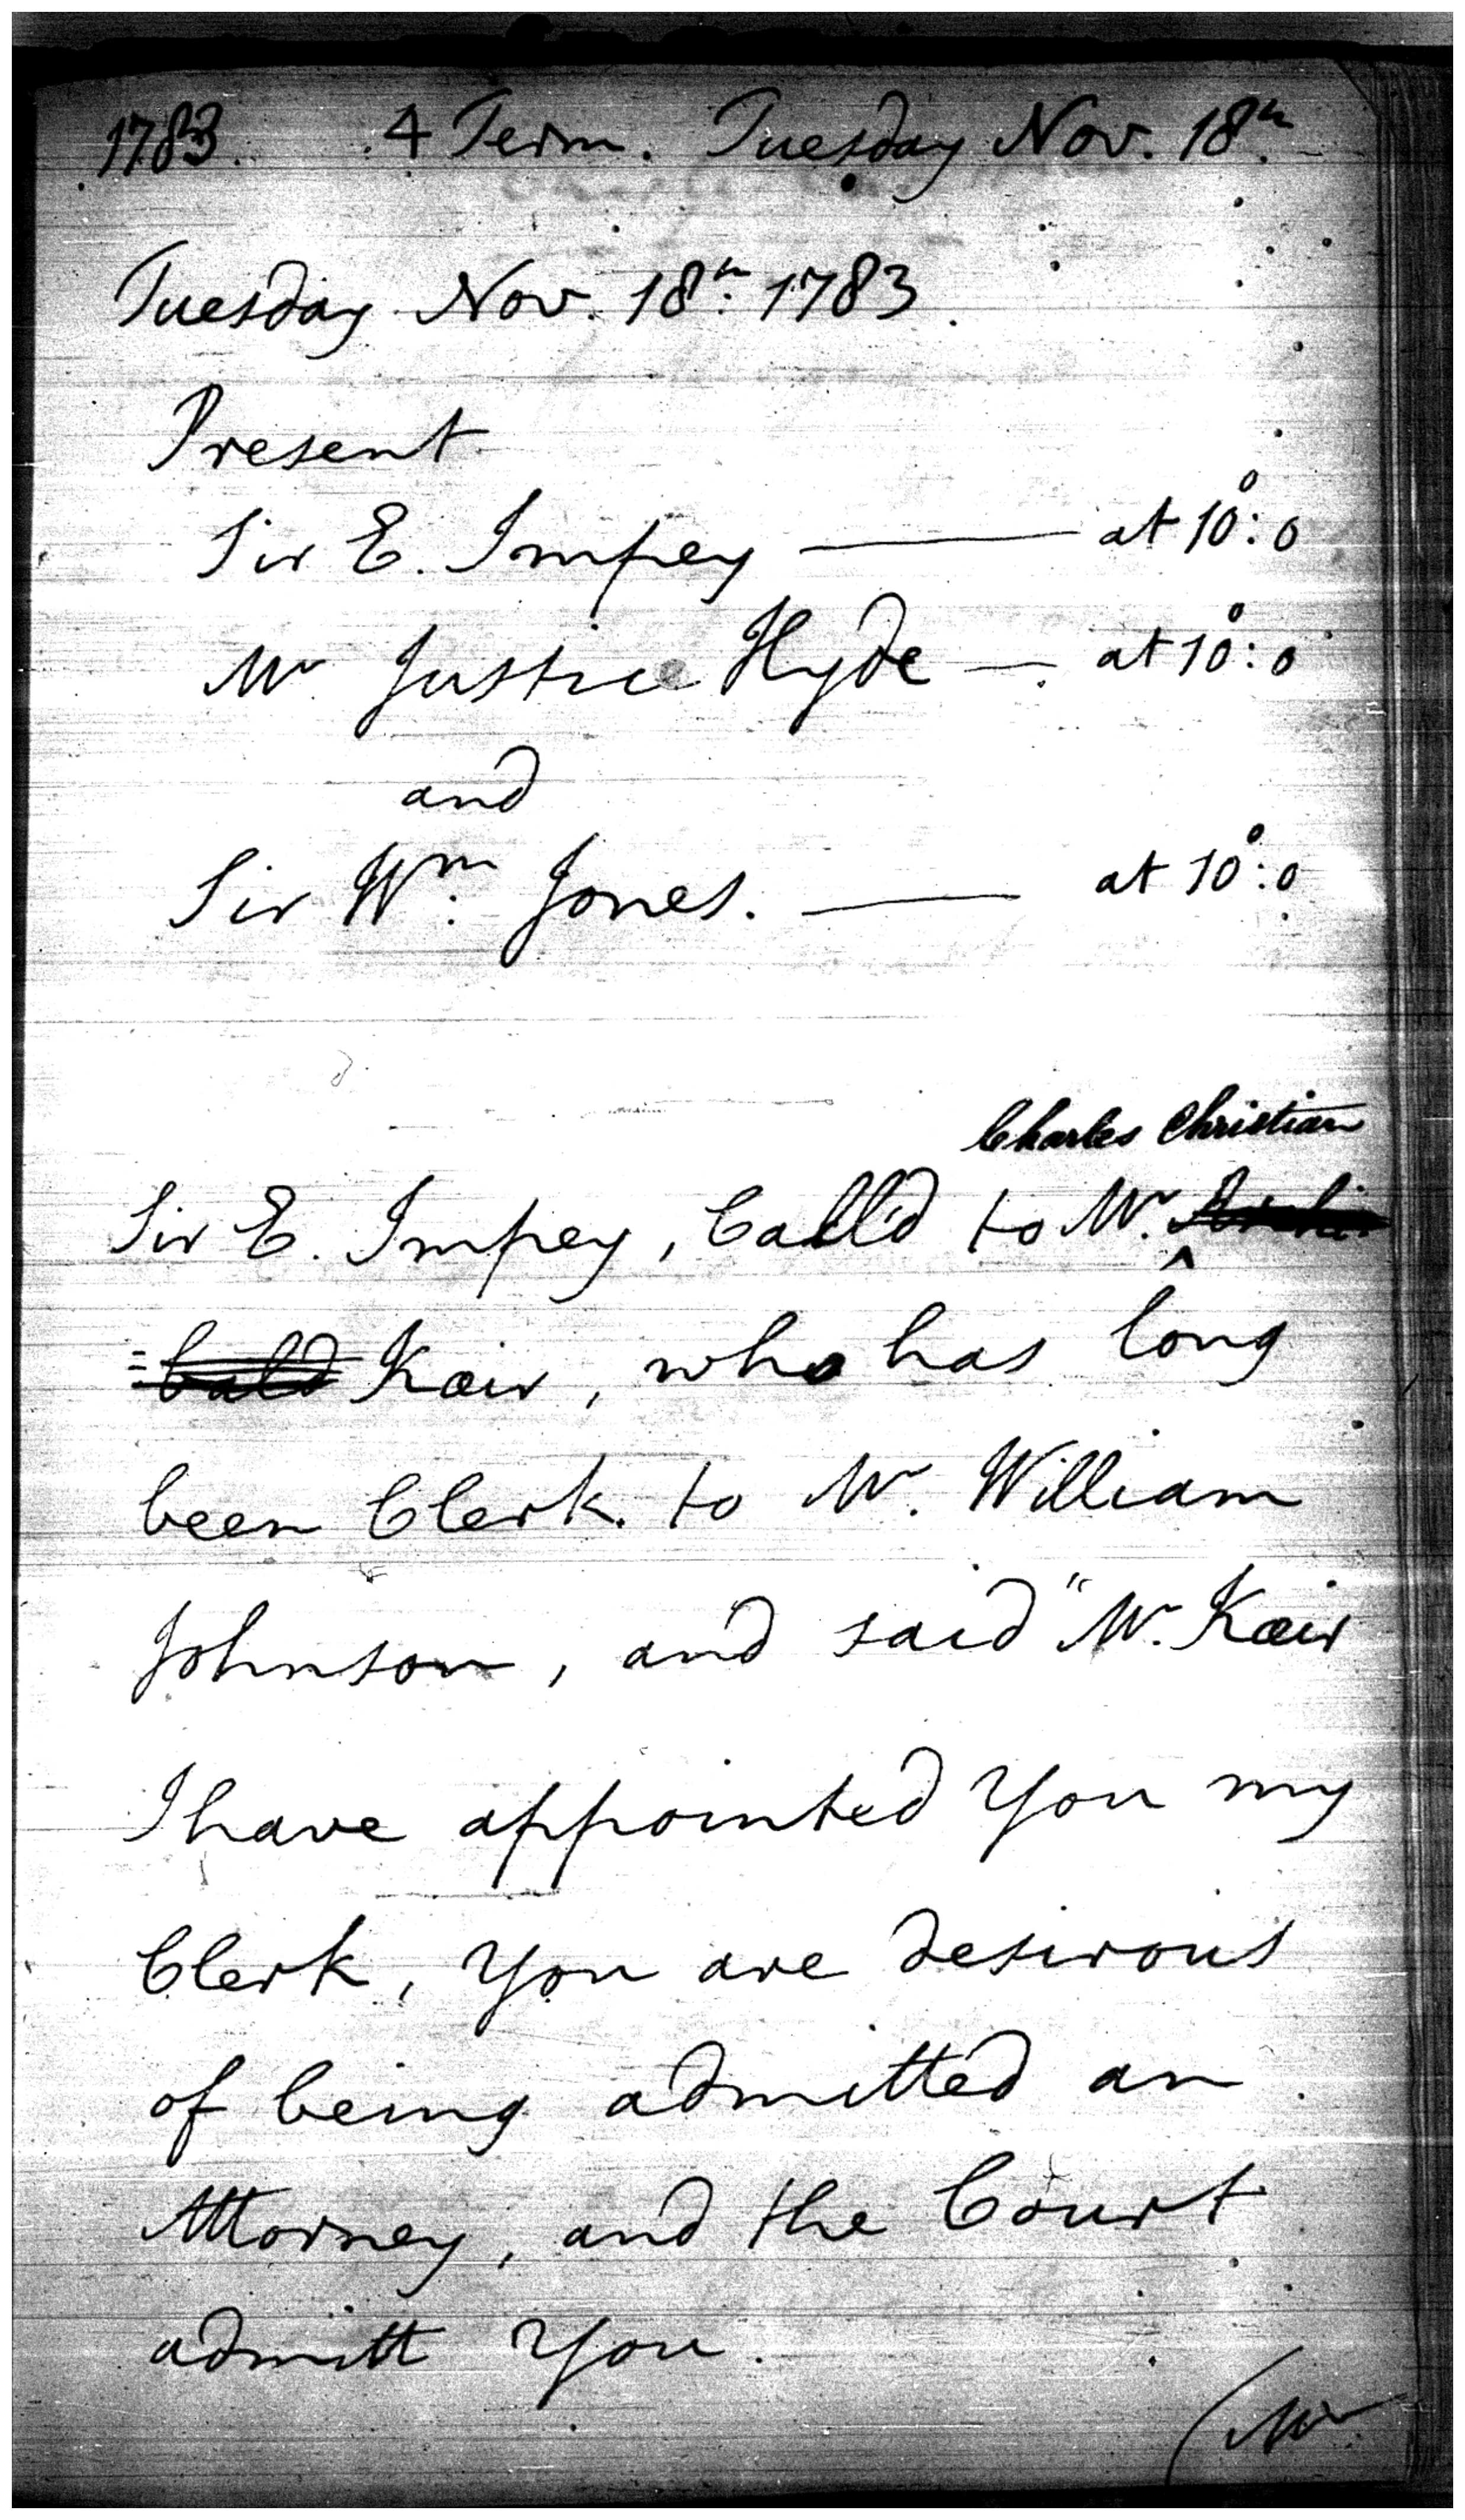 1783. 4 Term. Tuesday Nov. 18th
Tuesday Nov. 18th 1783.
Present
Sir E. Impey — at 10°: 0
Mr Justice Hyde — at 10°: 0
and
Sir Wm: Jones. — at 10°: 0
Charles Christian
Sir E. Impey, Call'd to Mr. Archi
=bald Keir, who has long
been Clerk to Mr. William
Johnson, and said "Mr. Keir
I have appointed You my
Clerk, You are desirous
of being admitted an
Attorney, and the Court
admitt You.
(Mr